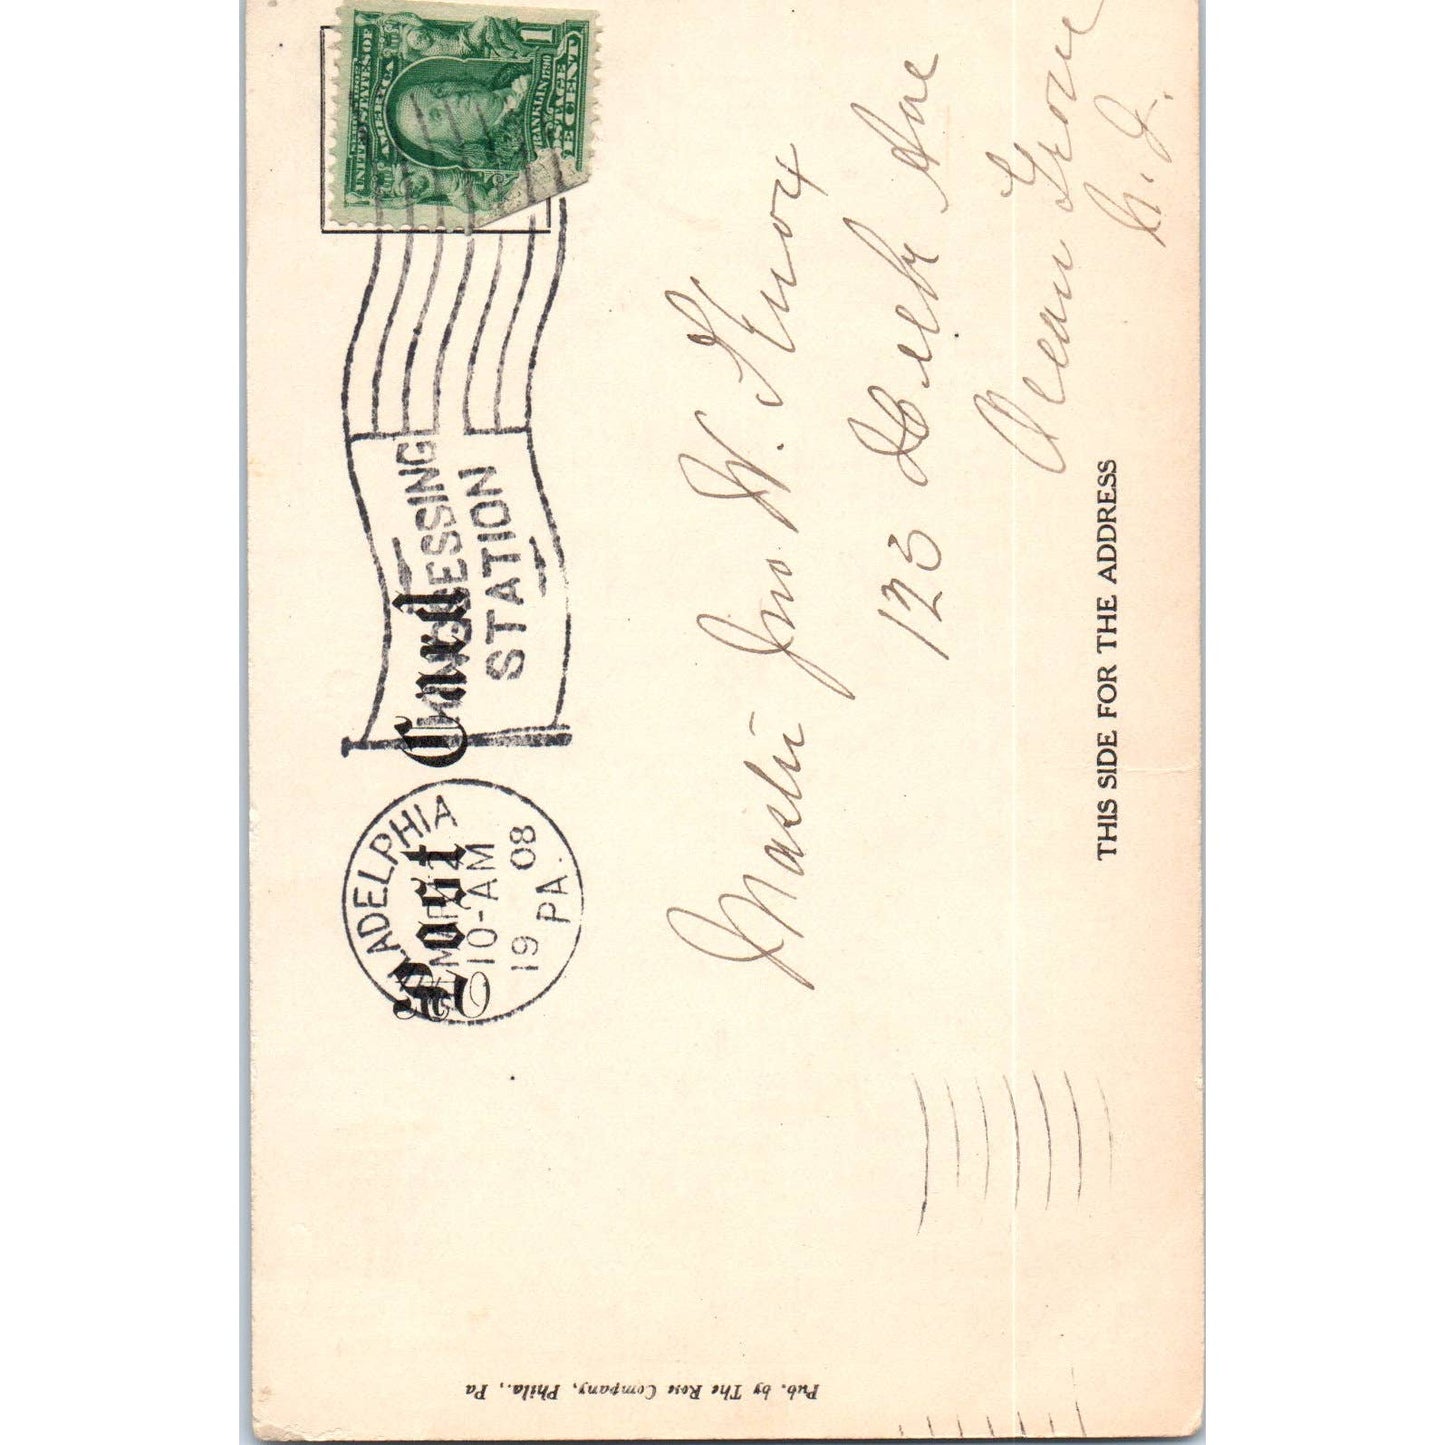 Post Card
PHILADELPHIA
MAR
10-AM
1908
PA.
STATION
UNITED STATES OF
AMERICA
FRANKLIN 1790
POSTAGE
1 ONE CENT
Master Jno. W. Knox
123 Heck Ave
Ocean Grove
N. J.
THIS SIDE FOR THE ADDRESS
Pub. by The Rose Company, Phila., Pa